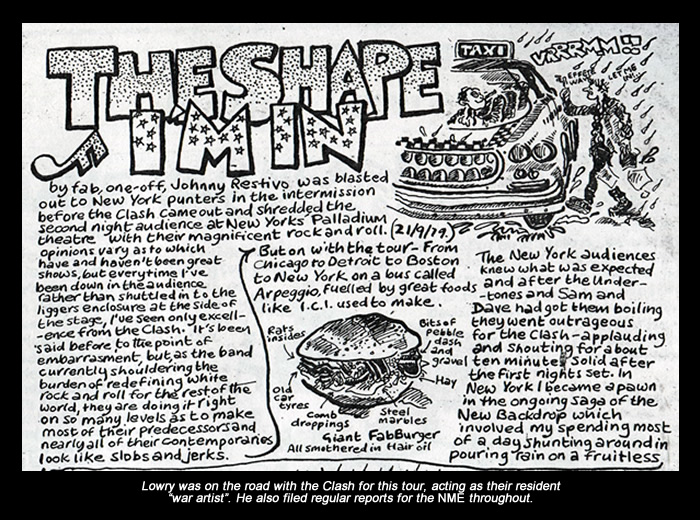 THE SHAPE
I'M IN
TAXI
VRRRMM!!
LET ME
by fab, one-off, Johnny Restivo was blasted
out to New York punters in the intermission
before the Clash came out and shredded the
second night audience at New Yorks' Palladium
theatre with their magnificent rock and roll. (21/9/79.)
opinions vary as to which
have and haven't been great
shows, but everytime I've
been down in the audience
rather than shuttled in to the
liggers enclosure at the side of
the stage, I've seen only excell-
-ence from the Clash. It's been
said before to the point of
embarrasment, but, as the band
currently shouldering the
burden of redefining white
rock and roll for the rest of the
world, they are doing it right
on so many levels as to make
most of their predecessors and
nearly all of their contemporaries
look like slobs and jerks.
But on with the tour- From
Chicago to Detroit to Boston
to New York on a bus called
Arpeggio, Fuelled by great foods
like I.C.I. used to make.
Rats
insides
Bits of
pebble
dash
and
gravel
Hay
Old
car
tyres
Comb
droppings
Steel
marbles
Giant FabBurger
All smothered in Hair oil
The New York audiences
knew what was expected
and after the Under-
-tones and Sam and
Dave had got them boiling
they went outrageous
for the Clash - applauding
and shouting for about
ten minutes solid after
the first nights set. In
New York I became a pawn
in the ongoing saga of the
New Backdrop which
involved my spending most
of a day shunting around in
pouring rain on a fruitless
Lowry was on the road with the Clash for this tour, acting as their resident
"war artist". He also filed regular reports for the NME throughout.